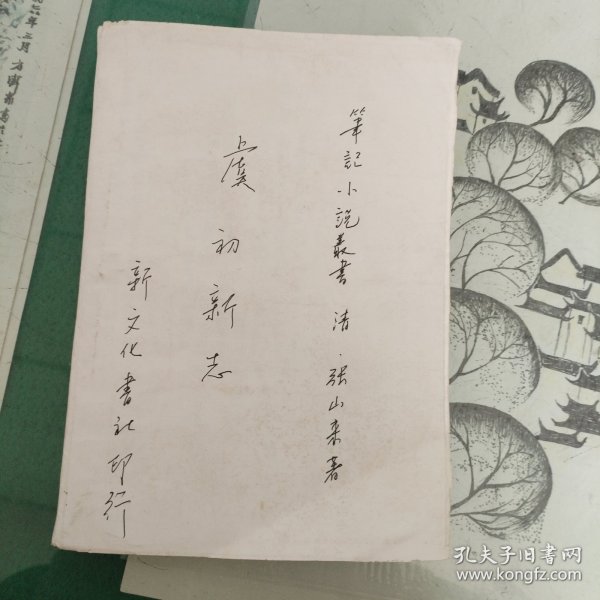 筆記小説叢書 清·張山来著
虞初新志
新文化書社印行
孔夫子旧書网
www.kongfz.com